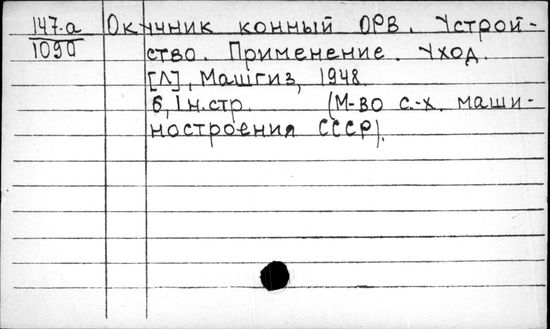 147.a Окучник конный ОРВ. Устрой-
1090 ство. Применение. Уход.
[Л], Машгиз, 1948.
6, 1 н.стр. (М-во с.-х. маши-
ностроения СССР).